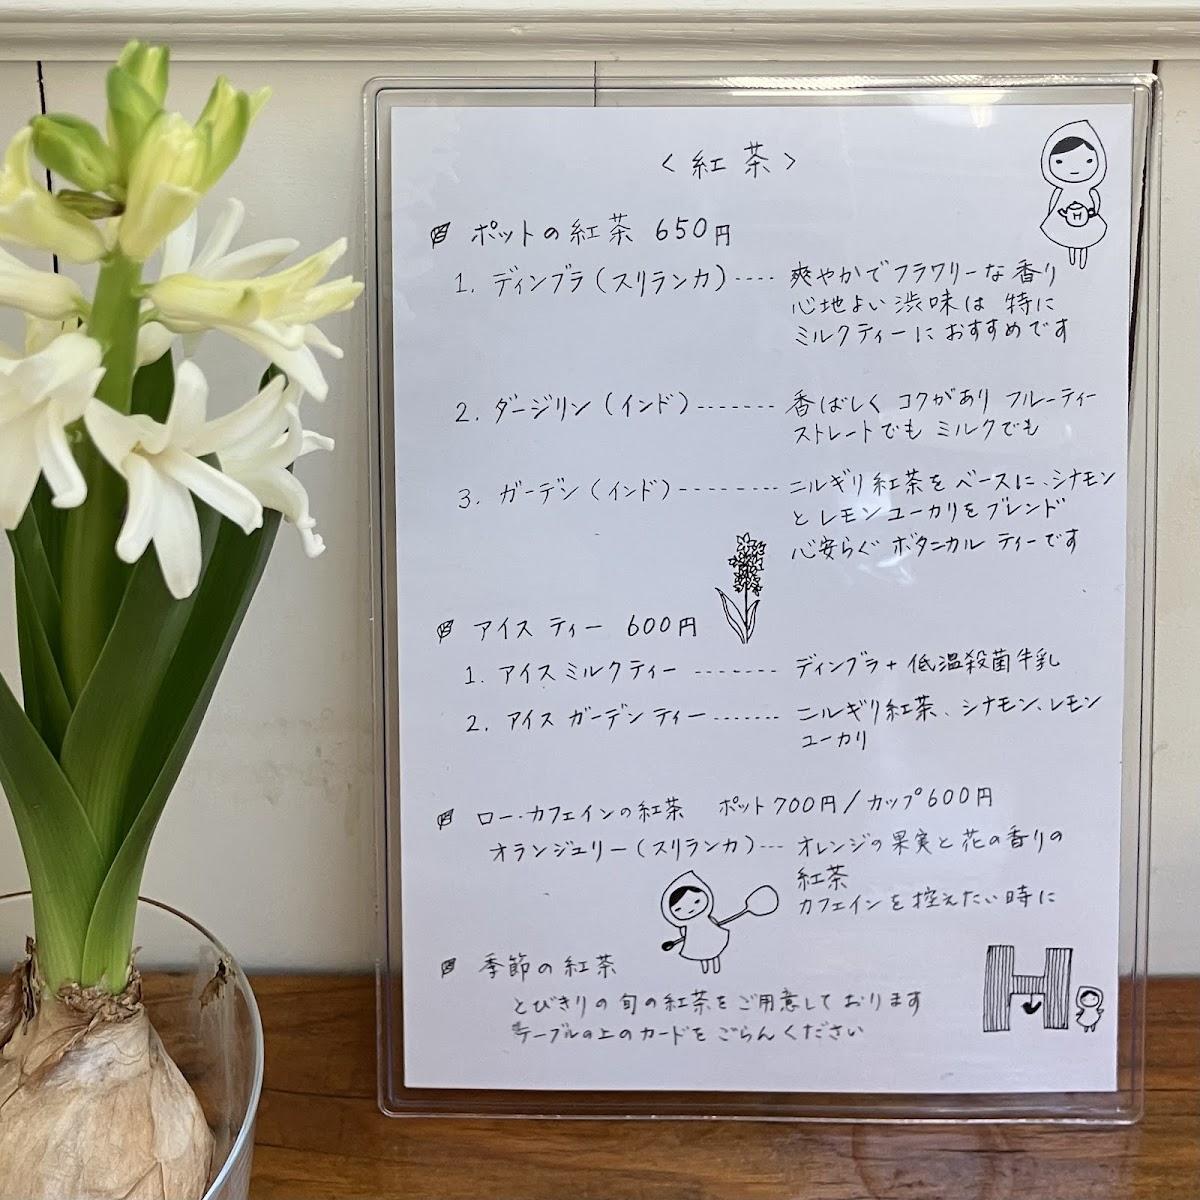 〈紅茶〉
ポットの紅茶 650円
1. ディンブラ(スリランカ)---- 爽やかでフラワリーな香り
心地よい渋味は 特に
ミルクティーにおすすめです
2. ダージリン(インド)------- 香ばしく コクがあり フルーティー
ストレートでも ミルクでも
3. ガーデン(インド)-------- ニルギリ紅茶をベースに、シナモン
とレモンユーカリをブレンド
心安らぐ ボタニカル ティーです
アイス ティー 600円
1. アイスミルクティー ------- ディンブラ+低温殺菌牛乳
2. アイス ガーデン ティー------- ニルギリ紅茶、シナモン、レモン
ユーカリ
ロー・カフェインの紅茶 ポット700円/カップ600円
オランジュリー(スリランカ)--- オレンジの果実と花の香りの
紅茶
カフェインを控えたい時に
季節の紅茶
とびきりの旬の紅茶をご用意しております
テーブルの上のカードをごらんください
H